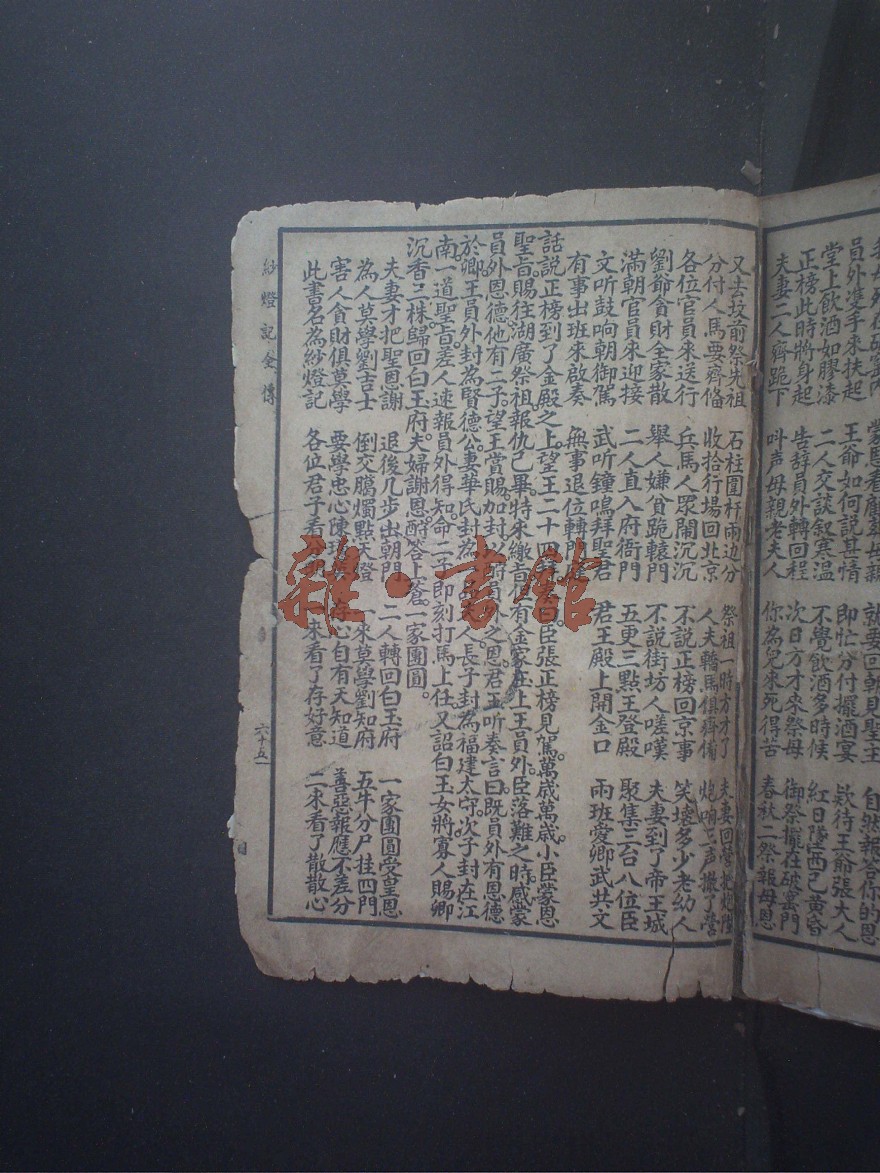 員外雙手來扶起　王爺如何說其情　即忙分付擺酒宴　欵待王爺張大人
堂上飲酒如膠漆　二人交談叙寒温　不覺飲酒多時候　紅日墜西已黄昏
正榜此時將身起　告辞員外轉回程　次日方才來祭母　御祭擺在破窰門
夫妻二人齊跪下　叫声母親老夫人　你為兒來死得苦　春秋二祭報母恩
又去坟前祭先祖　石柱圍杆兩边分　祭祖一時方才了
分付人馬要齊俻　收拾行塲回北京　人夫轎馬俱齊俻　炮响三声撤了營
各位官員來送行　兵馬人眾鬧沉沉　不說正榜回京事　笑壞多少老幼人
劉爺貪財全家散　舉人嫌貧跪轅門　不說街坊人嗟嘆　夫妻到了帝王城
滿朝官員來迎接　二人直入府衙門　五更三點王登殿　聚集三台八位臣
文听鼓响朝御駕　武听鐘鳴拜聖君　君王殿上開金口　兩班愛卿武共文
有事出班來啟奏　無事退位轉門
話說正榜到了金殿之上。望王二十四　臣張正榜見駕。萬歲萬歲。小臣蒙恩
聖旨賜往湖廣祭祖。報仇已畢。特來繳旨。有金家在上。王員外。臣落難之時。感蒙
員外恩德。他有二子。望王賞賜加封。以　員外之恩。君王听奏言曰。既員外有恩德
於卿。王員外封為賢德公。妻華氏封為　夫人。長子封為福建太守。次子封在江
南。一道聖旨。差人速報員外得知。命二子即刻打馬上任。又詔白玉女將寡人賜卿
沉香三株歸回白王府。夫婦謝恩。酧答上蒼。一家團圓。
夫妻才把聖恩謝　退後几步出朝門　二人轉回白玉府　一家團圓受皇恩
為人莫學劉吉士　倒交騰燭點天燈　一來莫學劉知府　五牛分尸挂四門
害人貪財俱莫學　要學忠心陳　存心自有天知道　善惡報應不差分
此書名為紗燈記　各位君子看分　來看了存好意　二來看了散散心
紗燈記全傳
六十五
雜·書館